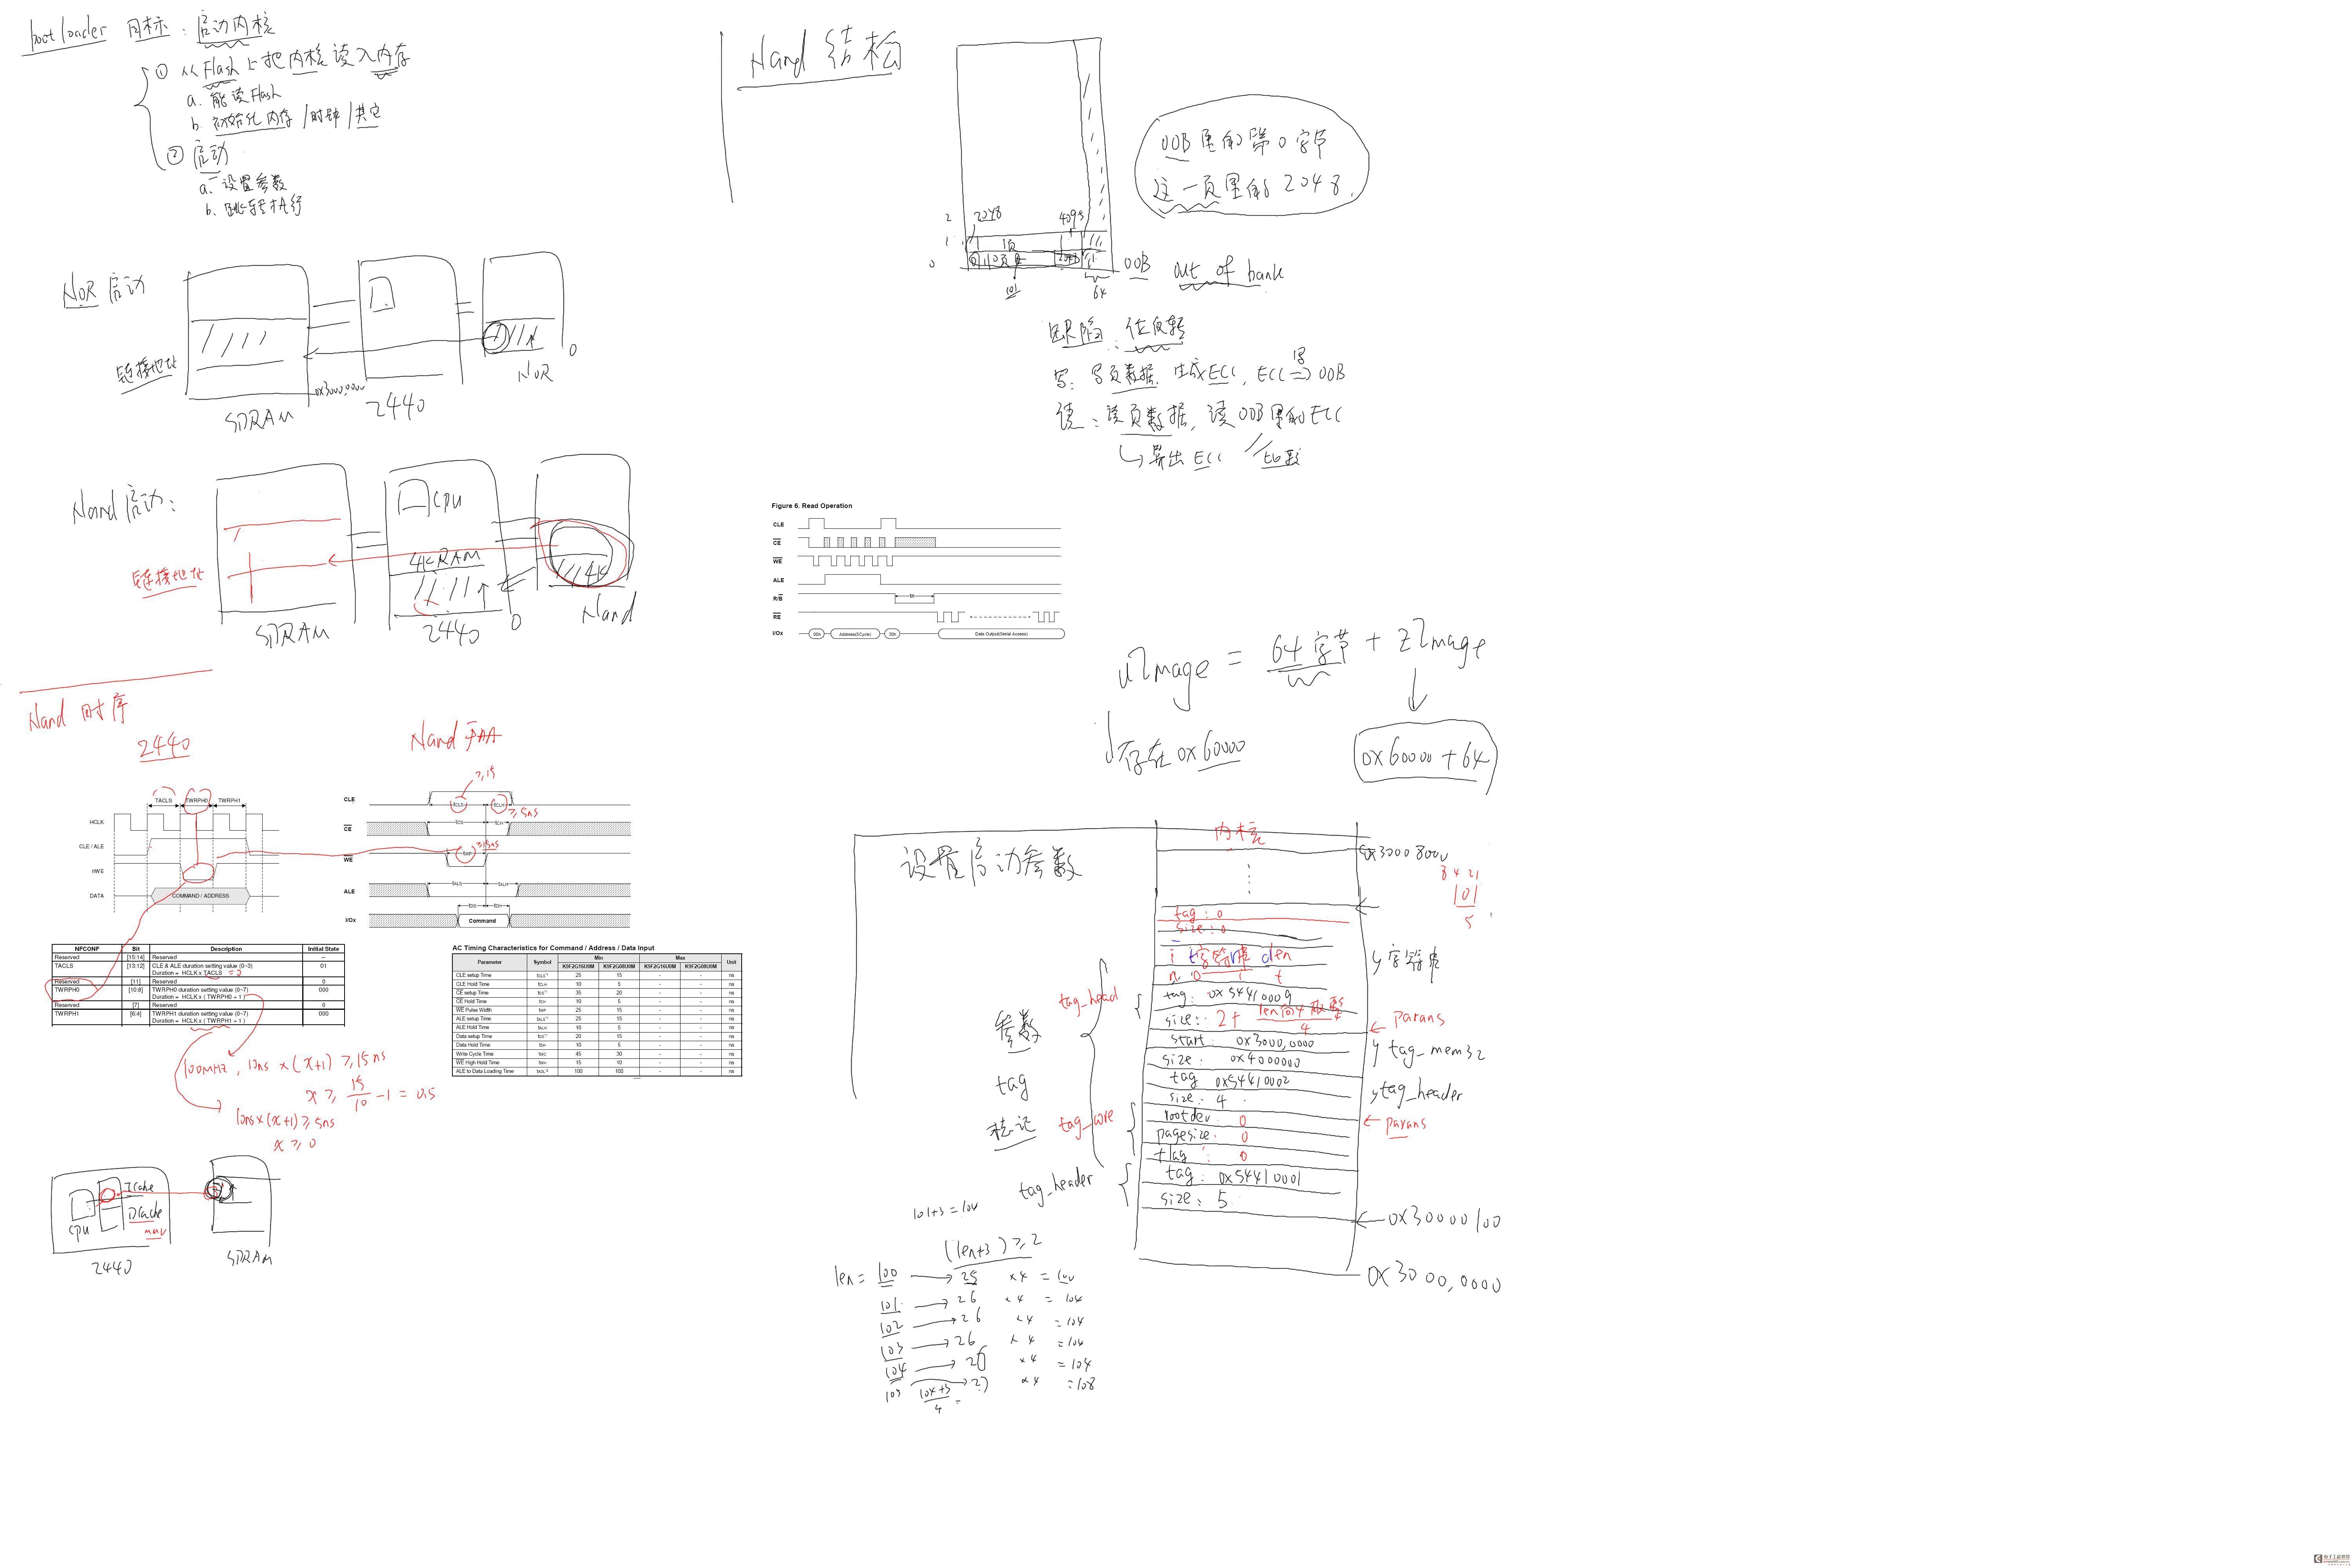 bootloader 目标：启动内核
① 从Flash上把内核读入内存
a. 能读Flash
b. 初始化内存/时钟/其它
② 启动
a. 设置参数
b. 跳转执行
NOR启动
链接地址
0x3000,0000
SDRAM
2440
NOR
0
Nand启动：
CPU
4KRAM
4K
链接地址
SDRAM
2440
0
Nand
Nand时序
2440
TACLS
TWRPH0
TWRPH1
HCLK
CLE / ALE
nWE
DATA
COMMAND / ADDRESS
NFCONF Bit Description Initial State
Reserved [15:14] Reserved –
TACLS [13:12] CLE & ALE duration setting value (0~3) 01
Duration = HCLK x TACLS = 0
Reserved [11] Reserved 0
TWRPH0 [10:8] TWRPH0 duration setting value (0~7) 000
Duration = HCLK x ( TWRPH0 + 1 )
Reserved [7] Reserved 0
TWRPH1 [6:4] TWRPH1 duration setting value (0~7) 000
Duration = HCLK x ( TWRPH1 + 1 )
100MHZ, 10ns × (x+1) ≥ 15ns
x ≥ 15/10 - 1 = 0.5
10ns×(x+1) ≥ 5ns
x ≥ 0
CPU
ICache
DCache
mmu
2440
SDRAM
Nand
≥15
CLE
tCLS
tCLH
≥5ns
CE
tCS
tCH
WE
tWP
≥15ns
ALE
tALS
tALH
I/Ox
tDS
tDH
Command
AC Timing Characteristics for Command / Address / Data Input
Parameter Symbol Min Max Unit
K9F2G16U0M K9F2G08U0M K9F2G16U0M K9F2G08U0M
CLE setup Time tCLS*1 25 15 - - ns
CLE Hold Time tCLH 10 5 - - ns
CE setup Time tCS*1 35 20 - - ns
CE Hold Time tCH 10 5 - - ns
WE Pulse Width tWP 25 15 - - ns
ALE setup Time tALS*1 25 15 - - ns
ALE Hold Time tALH 10 5 - - ns
Data setup Time tDS*1 20 15 - - ns
Data Hold Time tDH 10 5 - - ns
Write Cycle Time tWC 45 30 - - ns
WE High Hold Time tWH 15 10 - - ns
ALE to Data Loading Time tADL*2 100 100 - - ns
Nand结构
OOB里的第0字节
这一页里的2048.
2
1
0
2048
4095
1页
101
64
OOB
out of bank
缺陷：位反转
写：写页数据. 生成ECC, ECC 写⇒ OOB
读：读页数据, 读OOB里的ECC
算出ECC
Figure 6. Read Operation
CLE
CE
WE
ALE
R/B
tR
RE
I/Ox
00h
Address(5Cycle)
30h
Data Output(Serial Access)
uImage = 64字节 + zImage
存在0x60000
0x60000+64
设置启动参数
内核
0x30008000
8421
101
5
tag : 0
size : 0
字符串
tag: 0x54410009
size: 2+ len向4取整/4
params
start: 0x3000,0000
size: 0x4000000
tag_mem32
tag 0x54410002
size: 4
tag_header
rootdev: 0
pagesize: 0
flag: 0
params
tag: 0x54410001
size: 5
0x30000100
0x3000,0000
tag_head
参数
tag
标记
tag_core
tag_header
101+3=104
(len+3) ≥ 2
len = 100 → 25 ×4 = 100
101 → 26 ×4 = 104
102 → 26 ×4 = 104
103 → 26 ×4 = 104
104 → 26 ×4 = 104
105 → 27 ×4 = 108
104+3/4 =